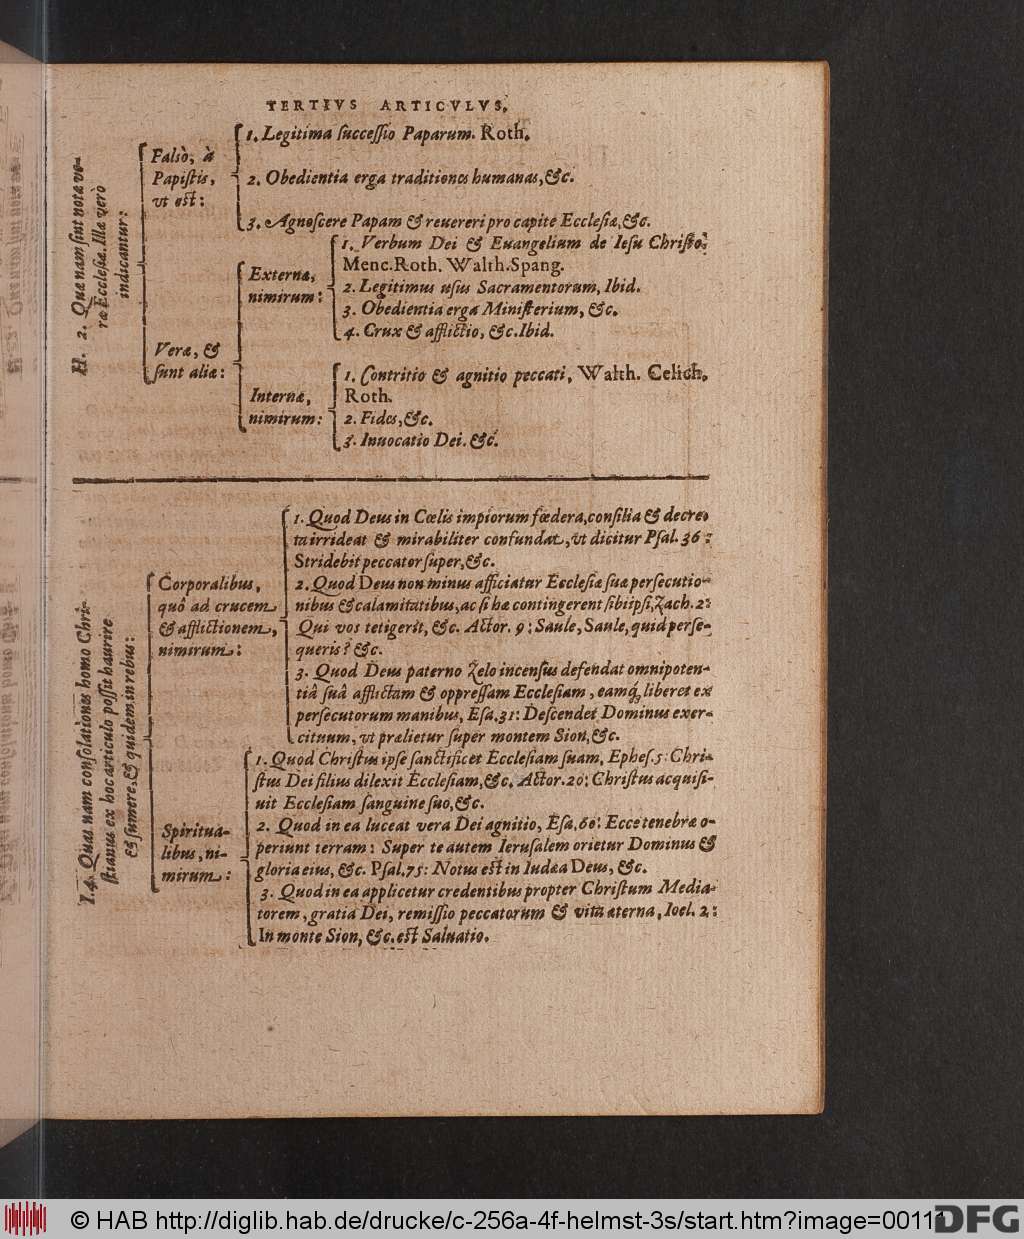 TERTIVS ARTICVLVS.
H. 2. Quæ nam ſint notæ ve-
ræ Eccleſiæ. Illæ verò
indicantur:
Falsò, à
Papiſtis,
vt eſt:
1. Legitima ſucceſſio Paparum. Roth.
2. Obedientia erga traditiones humanas, &c.
3. Agnoſcere Papam & reuereri pro capite Eccleſiæ, &c.
Veræ, &
ſunt aliæ:
Externæ,
nimirum:
1. Verbum Dei & Euangelium de Ieſu Chriſto:
Menc. Roth. Walth. Spang.
2. Legitimus uſus Sacramentorum, Ibid.
3. Obedientia erga Miniſterium, &c.
4. Crux & afflictio, &c. Ibid.
Internæ,
nimirum:
1. Contritio & agnitio peccati, Walth. Celich.
Roth.
2. Fides, &c.
3. Inuocatio Dei. &c.
I. 4. Quas nam conſolationes homo Chri-
ſtianus ex hoc articulo poſſit haurire
& ſumere, & quidem in rebus:
Corporalibus,
quô ad crucem
& afflictionem,
nimirum:
1. Quod Deus in Cœlis impiorum fœdera, conſilia & decre-
ta irrideat & mirabiliter confundat, vt dicitur Pſal. 36:
Stridebit peccator ſuper, &c.
2. Quod Deus non minus afficiatur Eccleſiæ ſuæ perſecutio-
nibus & calamitatibus, ac ſi hæ contingerent ſibiipſi, Zach. 2:
Qui vos tetigerit, &c. Actor. 9: Saule, Saule, quid perſe-
queris? &c.
3. Quod Deus paterno Zelo incenſus defendat omnipoten-
tiâ ſuâ afflictam & oppreſſam Eccleſiam, eamq́; liberet ex
perſecutorum manibus, Eſa. 31: Deſcendet Dominus exer-
cituum, vt prælietur ſuper montem Sion, &c.
Spiritua-
libus, ni-
mirum:
1. Quod Chriſtus ipſe ſanctificet Eccleſiam ſuam, Epheſ. 5: Chri-
ſtus Dei filius dilexit Eccleſiam, &c. Actor. 20: Chriſtus acquiſi-
uit Eccleſiam ſanguine ſuo, &c.
2. Quod in ea luceat vera Dei agnitio, Eſa. 60: Ecce tenebræ o-
periunt terram: Super te autem Ieruſalem orietur Dominus &
gloria eius, &c. Pſal. 75: Notus eſt in Iudæa Deus, &c.
3. Quod in ea applicetur credentibus propter Chriſtum Media-
torem, gratia Dei, remiſſio peccatorum & vita æterna, Ioel. 2:
In monte Sion, &c. est Saluatio.
© HAB http://diglib.hab.de/drucke/c-256a-4f-helmst-3s/start.htm?image=00111
DFG